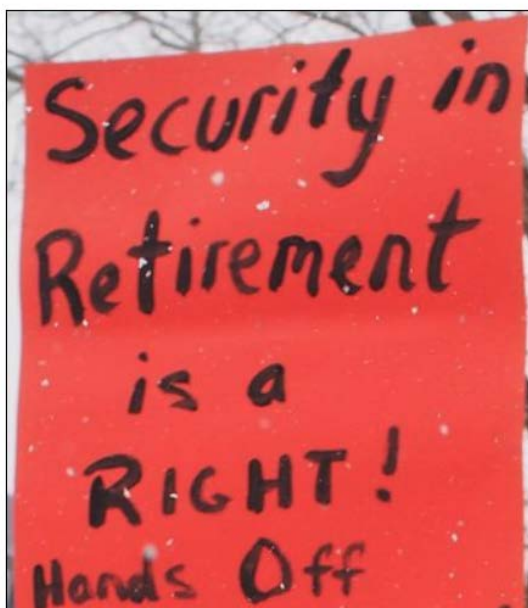 Security in
Retirement
is a
RIGHT!
Hands Off